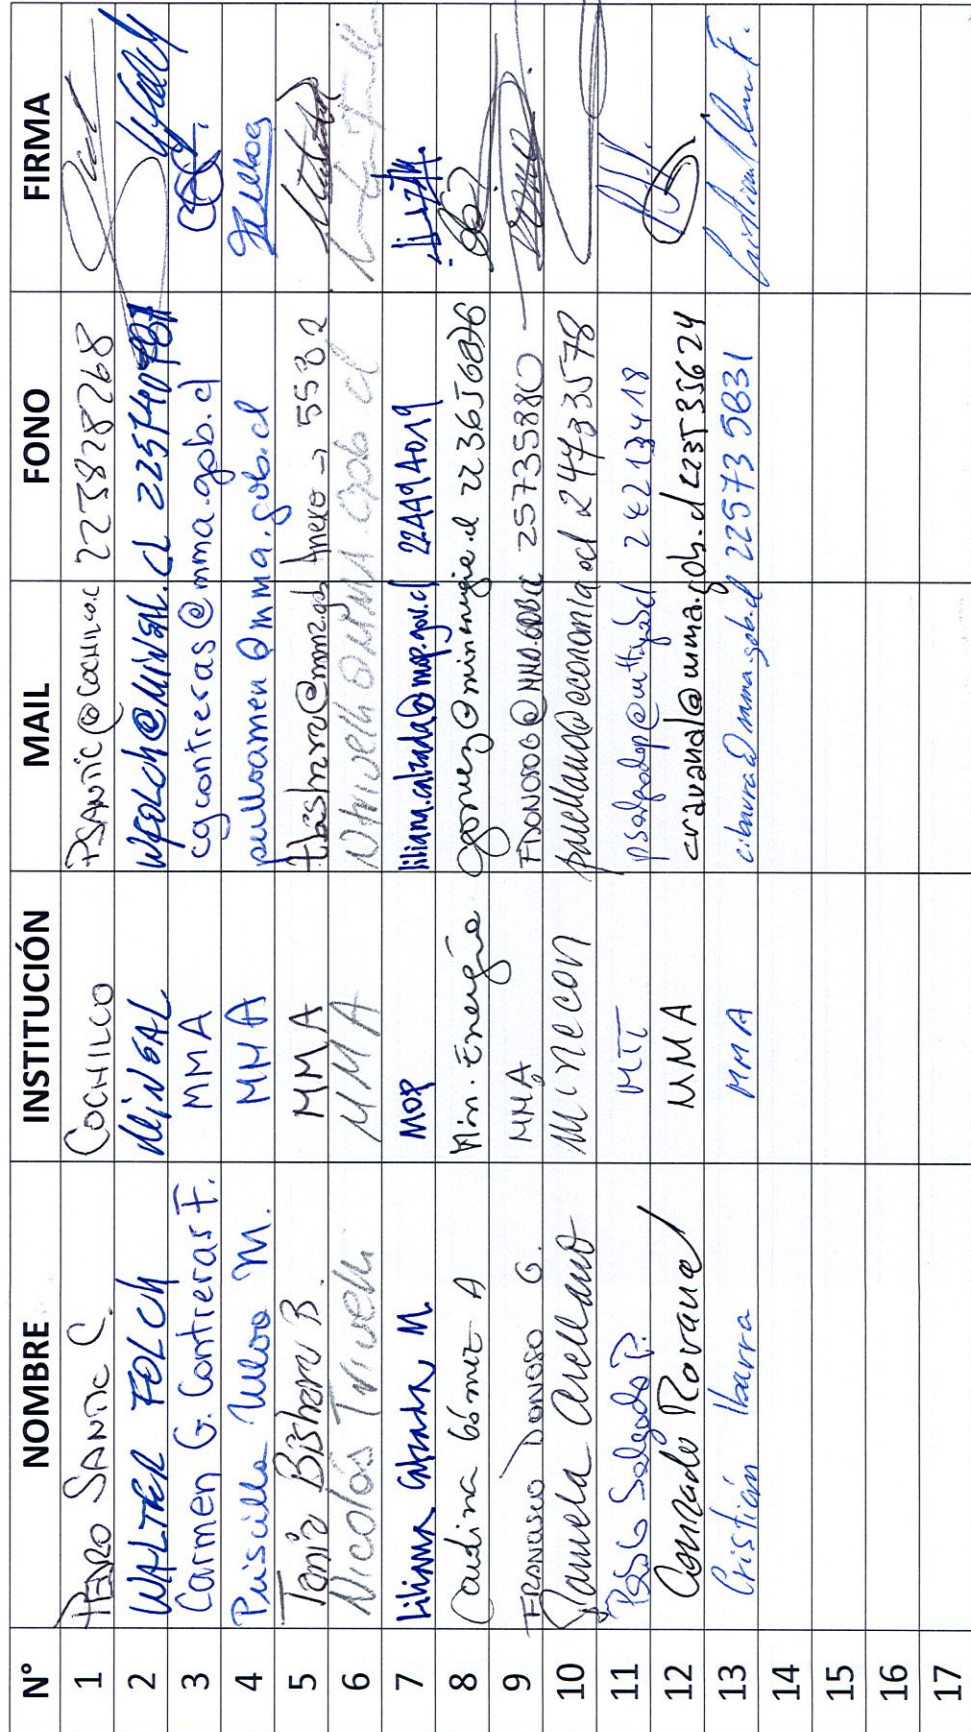 N° NOMBRE INSTITUCIÓN MAIL FONO FIRMA
1 PEDRO SANTIC C. COCHILCO PSANTIC@COCHILCO.CL 223828268
2 WALTER FOLCH MINSAL WFOLCH@MINSAL.CL
3 Carmen G. Contreras F. MMA cgcontreras@mma.gob.cl
4 Priscilla Ulloa M. MMA pulloamen@mma.gob.cl
5 MMA Anexo → 5582
6 Nicolás Trivelli MMA
7 Liliana Calzada M. MOP liliana.calzada@mop.gov.cl 224494019
8 Carolina Gómez A Min. Energía cgomez@minenergia.cl 223656876
9 FRANCISCO DONOSO G. MMA 25735880
10 Pamela Arellano Minecon parellano@economia.cl 24733578
11 Pablo Salgado P. MTT
12 Conrado Ravanal MMA cravanal@mma.gob.cl 223735624
13 Cristián Ibarra MMA cibarra@mma.gob.cl 22573 5631
14
15
16
17